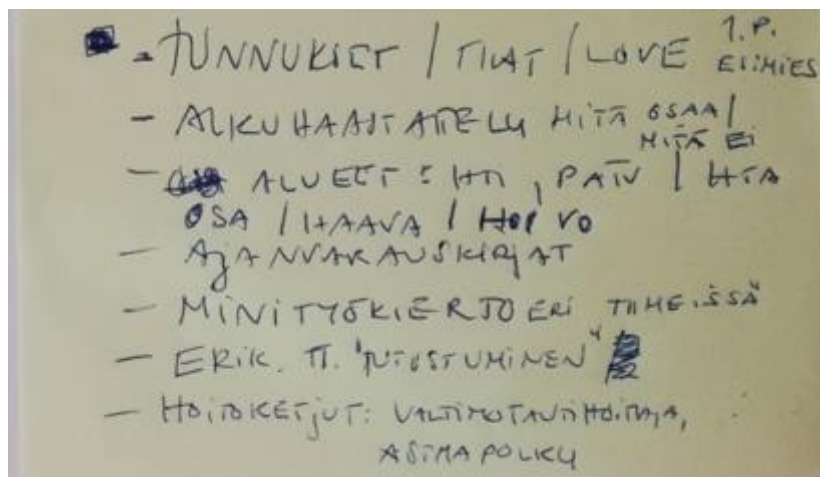 - TUNNUKSET / TILAT / LOVE 1.P. ESIMIES
- ALKUHAASTATTELU MITÄ OSAA / MITÄ EI
- ALUEET : HTI , PÄIV / HTA
OSA / HAAVA / HOI VO
- AJANVARAUSKIRJAT
- MINITYÖKIERTO ERI TIIMEISSÄ
- ERIK. TT. "TUTUSTUMINEN"
- HOITOKETJUT: VALTIMOTAUTIHOITAJA,
ASTMAPOLKU